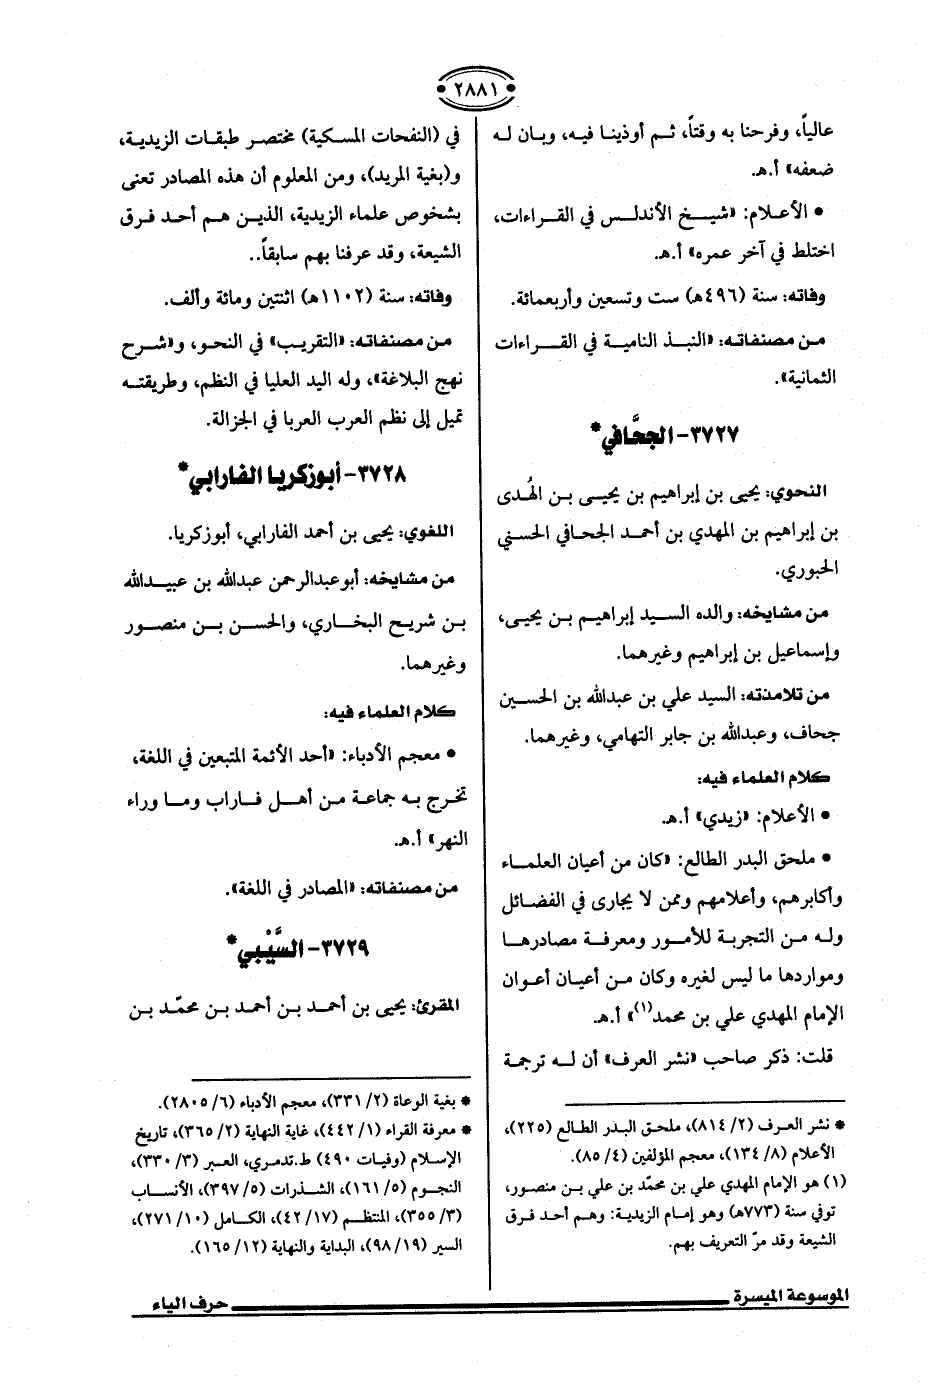 ٢٨٨١
عالياً، وفرحنا به وقتاً، ثم أوذينا فيه، وبان له
ضعفه» أ.هـ.
• الأعلام: «شيخ الأندلس في القراءات،
اختلط في آخر عمره» أ.هـ.
وفاته: سنة (٤٩٦هـ) ست وتسعين وأربعمائة.
من مصنفاته: «النبذ النامية في القراءات
الثمانية».
٣٧٢٧- الجحَّافي*
النحوي: يحيى بن إبراهيم بن يحيى بن الهُدى
بن إبراهيم بن المهدي بن أحمد الجحافي الحسني
الحبوري.
من مشايخه: والده السيد إبراهيم بن يحيى،
وإسماعيل بن إبراهيم وغيرهما.
من تلامذته: السيد علي بن عبدالله بن الحسين
جحاف، وعبدالله بن جابر التهامي، وغيرهما.
كلام العلماء فيه:
• الأعلام: «زيدي» أ.هـ.
• ملحق البدر الطالع: «كان من أعيان العلماء
وأكابرهم، وأعلامهم وممن لا يجارى في الفضائل
وله من التجربة للأمور ومعرفة مصادرها
ومواردها ما ليس لغيره وكان من أعيان أعوان
الإمام المهدي علي بن محمد(١)» أ.هـ.
قلت: ذكر صاحب «نشر العرف» أن له ترجمة
* نشر العرف (٢/ ٨١٤)، ملحق البدر الطالع (٢٢٥)،
الأعلام (٨/ ١٣٤)، معجم المؤلفين (٤/ ٨٥).
(١) هو الإمام المهدي علي بن محمّد بن علي بن منصور،
توفي سنة (٧٧٣هـ) وهو إمام الزيدية: وهم أحد فرق
الشيعة وقد مرّ التعريف بهم.
في (النفحات المسكية) مختصر طبقات الزيدية،
و(بغية المريد)، ومن المعلوم أن هذه المصادر تعنى
بشخوص علماء الزيدية، الذين هم أحد فرق
الشيعة، وقد عرفنا بهم سابقاً..
وفاته: سنة (١١٠٢هـ) اثنتين ومائة وألف.
من مصنفاته: «التقريب» في النحو، و«شرح
نهج البلاغة»، وله اليد العليا في النظم، وطريقته
تميل إلى نظم العرب العربا في الجزالة.
٣٧٢٨- أبوزكريا الفارابي*
اللغوي: يحيى بن أحمد الفارابي، أبوزكريا.
من مشايخه: أبوعبدالرحمن عبدالله بن عبيدالله
بن شريح البخاري، والحسن بن منصور
وغيرهما.
كلام العلماء فيه:
• معجم الأدباء: «أحد الأئمة المتبعين في اللغة،
تخرج به جماعة من أهل فاراب وما وراء
النهر» أ.هـ.
من مصنفاته: «المصادر في اللغة».
٣٧٢٩- السَّيْبي*
المقرئ: يحيى بن أحمد بن أحمد بن محمّد بن
* بغية الوعاة (٢/ ٣٣١)، معجم الأدباء (٦/ ٢٨٠٥).
* معرفة القراء (١/ ٤٤٢)، غاية النهاية (٢/ ٣٦٥)، تاريخ
الإسلام (وفيات ٤٩٠) ط.تدمري، العبر (٣/ ٣٣٠)،
النجوم (٥/ ١٦١)، الشذرات (٥/ ٣٩٧)، الأنساب
(٣/ ٣٥٥)، المنتظم (١٧/ ٤٢)، الكامل (١٠/ ٢٧١)،
السير (١٩/ ٩٨)، البداية والنهاية (١٢/ ١٦٥).
الموسوعة الميسرة
حرف الياء